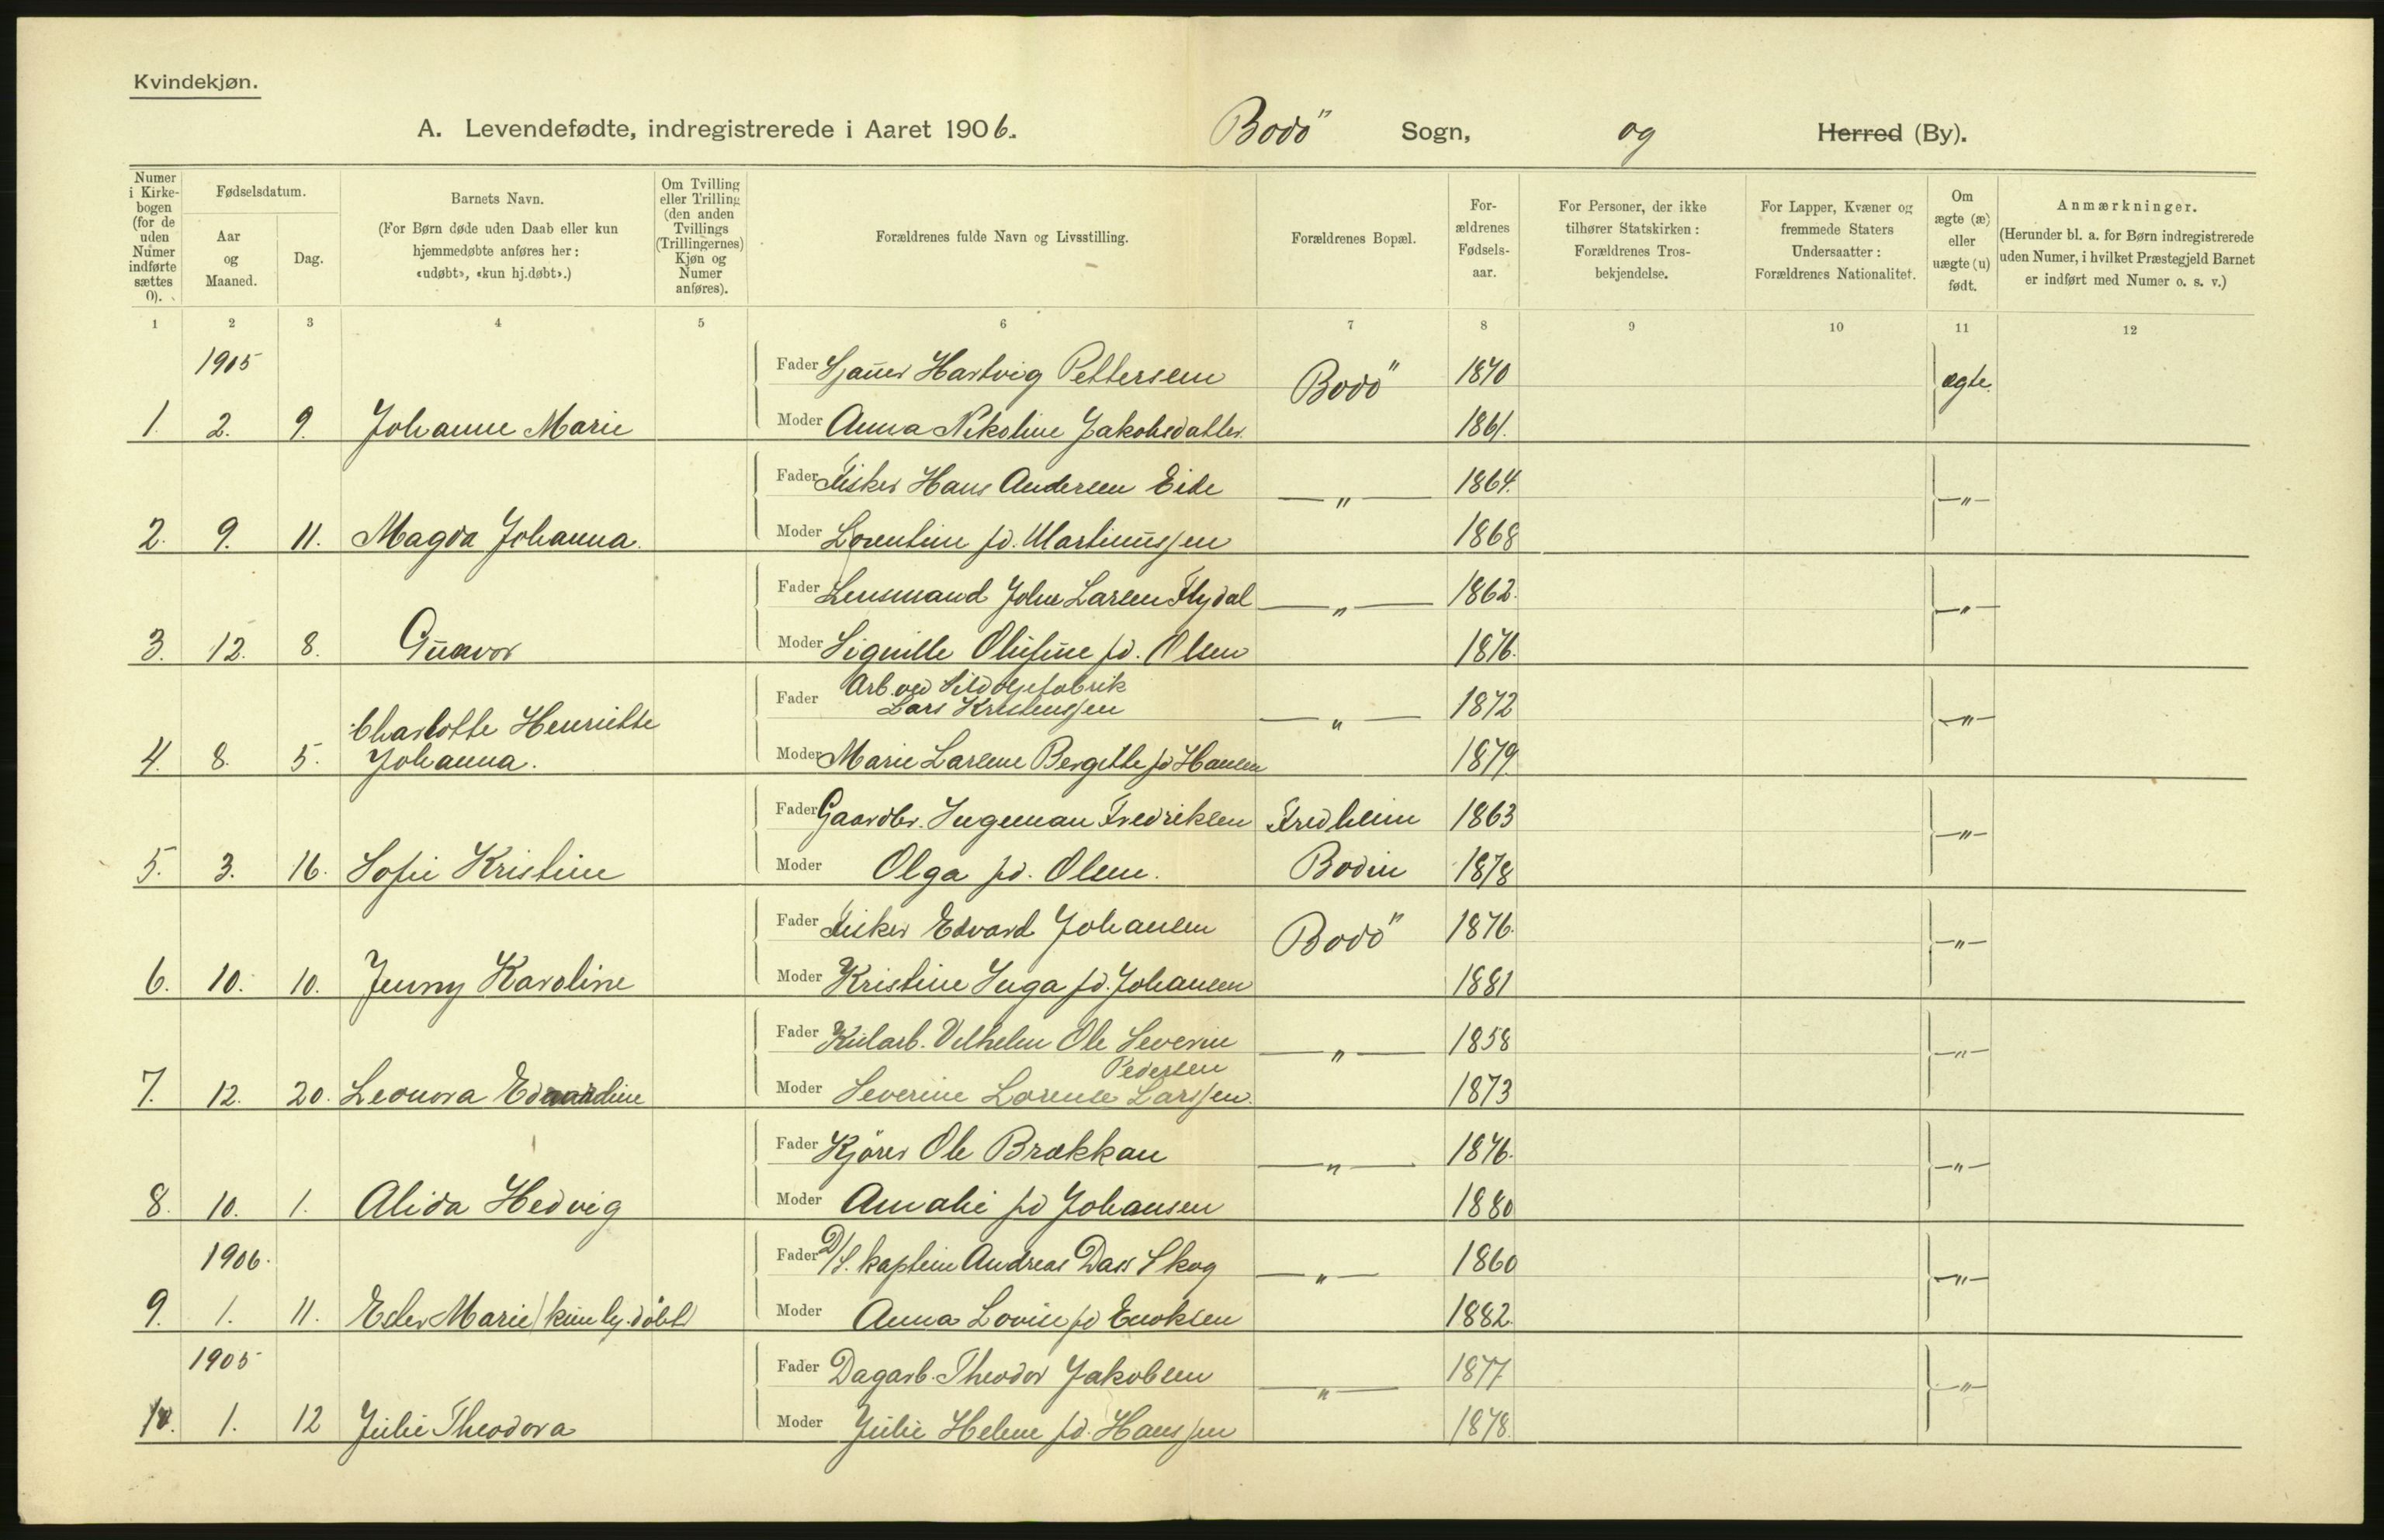 Kvindekjøn.
A. Levendefødte, indregistrerede i Aaret 1906. Bodö Sogn, og Herred (By).
Numer i Kirkebogen (for de uden Numer indførte sættes 0).
Fødselsdatum.
Aar og Maaned.
Dag.
Barnets Navn.
(For Børn døde uden Daab eller kun hjemmedøbte anføres her: «udøbt», «kun hj.døbt».)
Om Tvilling eller Trilling (den anden Tvillings (Trillingernes) Kjøn og Numer anføres).
Forældrenes fulde Navn og Livsstilling.
Forældrenes Bopæl.
For-ældrenes Fødsels-aar.
For Personer, der ikke tilhører Statskirken: Forældrenes Tros-bekjendelse.
For Lapper, Kvæner og fremmede Staters Undersaatter: Forældrenes Nationalitet.
Om ægte (æ) eller uægte (u) født.
Anmærkninger.
(Herunder bl. a. for Børn indregistrerede uden Numer, i hvilket Præstegjeld Barnet er indført med Numer o. s. v.)
1 2 3 4 5 6 7 8 9 10 11 12
1905 Fader Hartvig Pettersen Bodö 1870 ægte
1. 2. 9. Johanne Marie Moder Anna Nikoline Jakobsdatter 1861.
Fader Fisker Hans Andersen Eide —„— 1864. —„—
2. 9. 11. Magda Johanna. Moder Lorentine fd. Martinussen 1868
Fader Lensmand John Larsen Flydal —„— 1862. —„—
3. 12. 8. Gunvor Moder Olufine fd. Olsen 1876.
Fader Arb. ved Sildoljefabrik
Lars Kristenssen —„— 1872 —„—
4. 8. 5. Charlotte Henriette
Johanna. Moder Marie Larsine Bergitte fd Hansen 1879.
Fader Gaardbr. Ingeman Fredriksen Fredheim 1863 —„—
5. 3. 16. Sofie Kristine Moder Olga fd. Olsen. Bodin 1878
Fader Fisker Edvard Johansen Bodö 1876. —„—
6. 10. 10. Jenny Karoline Moder Kristine Inga fd. Johansen 1881
Fader Kularb. Vilhelm Ole Severin
Pedersen —„— 1858 —„—
7. 12. 20. Leonora Edvardine Moder Severine Lorense Larssen. 1873
Fader Kjörer Ole Brækkan —„— 1876. —„—
8. 10. 1. Alida Hedvig Moder Amalie fd Johansen 1880
1906. Fader D/S. kaptein Andreas Dass Skog —„— 1860 —„—
9. 1. 11. Ester Marie (kun hj. döbt) Moder Anna Lovise fd Enoksen 1882.
1905 Fader Dagarb. Theodor Jakobsen —„— 1877 —„—
10. 1. 12 Julie Theodora Moder Julie Helene fd. Hanssen 1878.